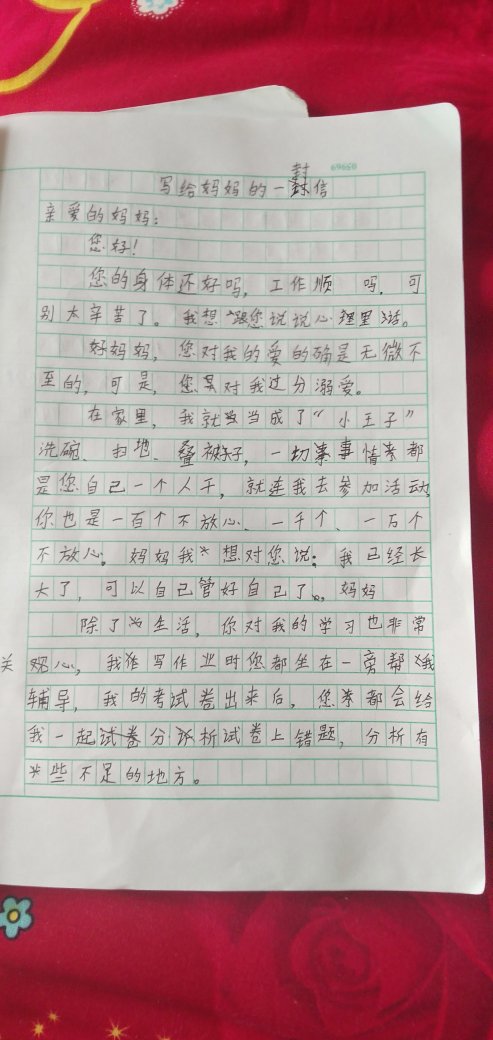 69650
写给妈妈的一封信
亲爱的妈妈：
您好！
您的身体还好吗，工作顺 吗，可
别太辛苦了。我想跟您说说心理里话。
好妈妈，您对我的爱的确是无微不
至的，可是，您对我过分溺爱。
在家里，我就当成了“小王子”
洗碗、扫地、叠被子，一切事情都
是您自己一个人干，就连我去参加活动
你也是一百个不放心、一千个、一万个
不放心。妈妈我想对您说：我已经长
大了，可以自己管好自己了。妈妈
除了生活，你对我的学习也非常
关心，我在写作业时您都坐在一旁帮我
辅导，我的考试卷出来后，您都会给
我一起分析试卷上错题，分析有
些不足的地方。